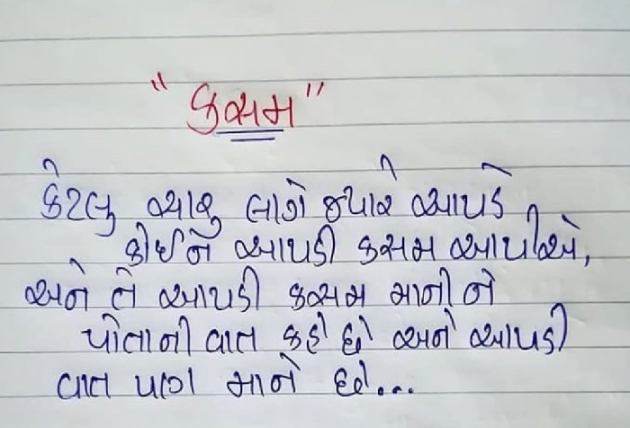 "કસમ"
કેટલુ સારુ લાગે જ્યારે આપડે
કોઈને આપડી કસમ આપીએ,
અને તે આપડી કસમ માની ને
પોતાની વાત કહે છે અને આપડી
વાત પણ માને છે...